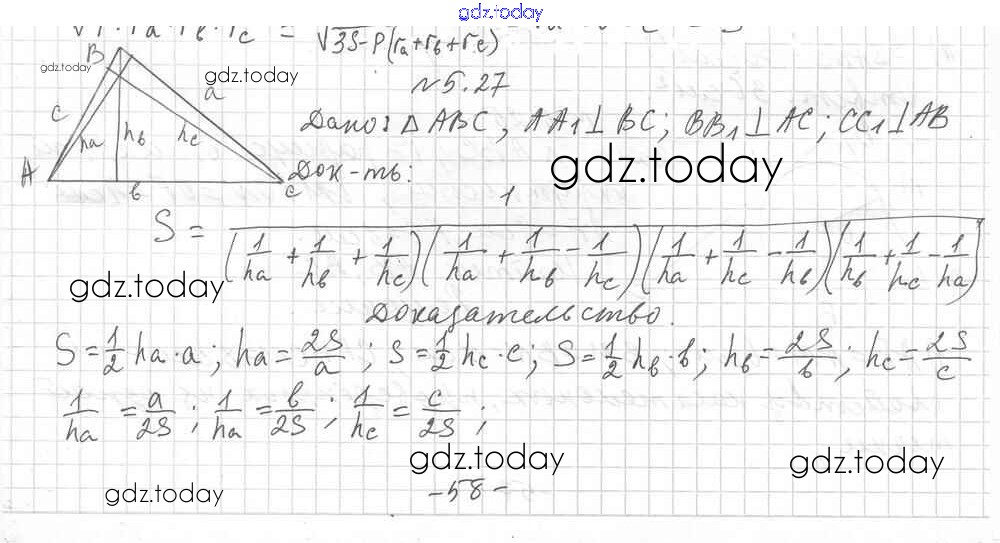 gdz.today
√3S-P(ra+rв+rc)
№5.27
B
gdz.today
gdz.today
a
c
ha
hв
hc
A
в
c
Дано: △ ABC, AA1 ⊥ BC; BB1 ⊥ AC; CC1 ⊥ AB
Док-ть:
gdz.today
S = 1/((1/ha + 1/hв + 1/hc)(1/ha + 1/hв - 1/hc)(1/ha + 1/hc - 1/hв)(1/hв + 1/hc - 1/ha))
gdz.today
Доказательство.
S = 1/2 ha · a; ha = 2S/a; S = 1/2 hc · c; S = 1/2 hв · в; hв = 2S/в; hc = 2S/c
1/ha = a/2S; 1/ha = в/2S; 1/hc = c/2S;
gdz.today
gdz.today
gdz.today
-58-